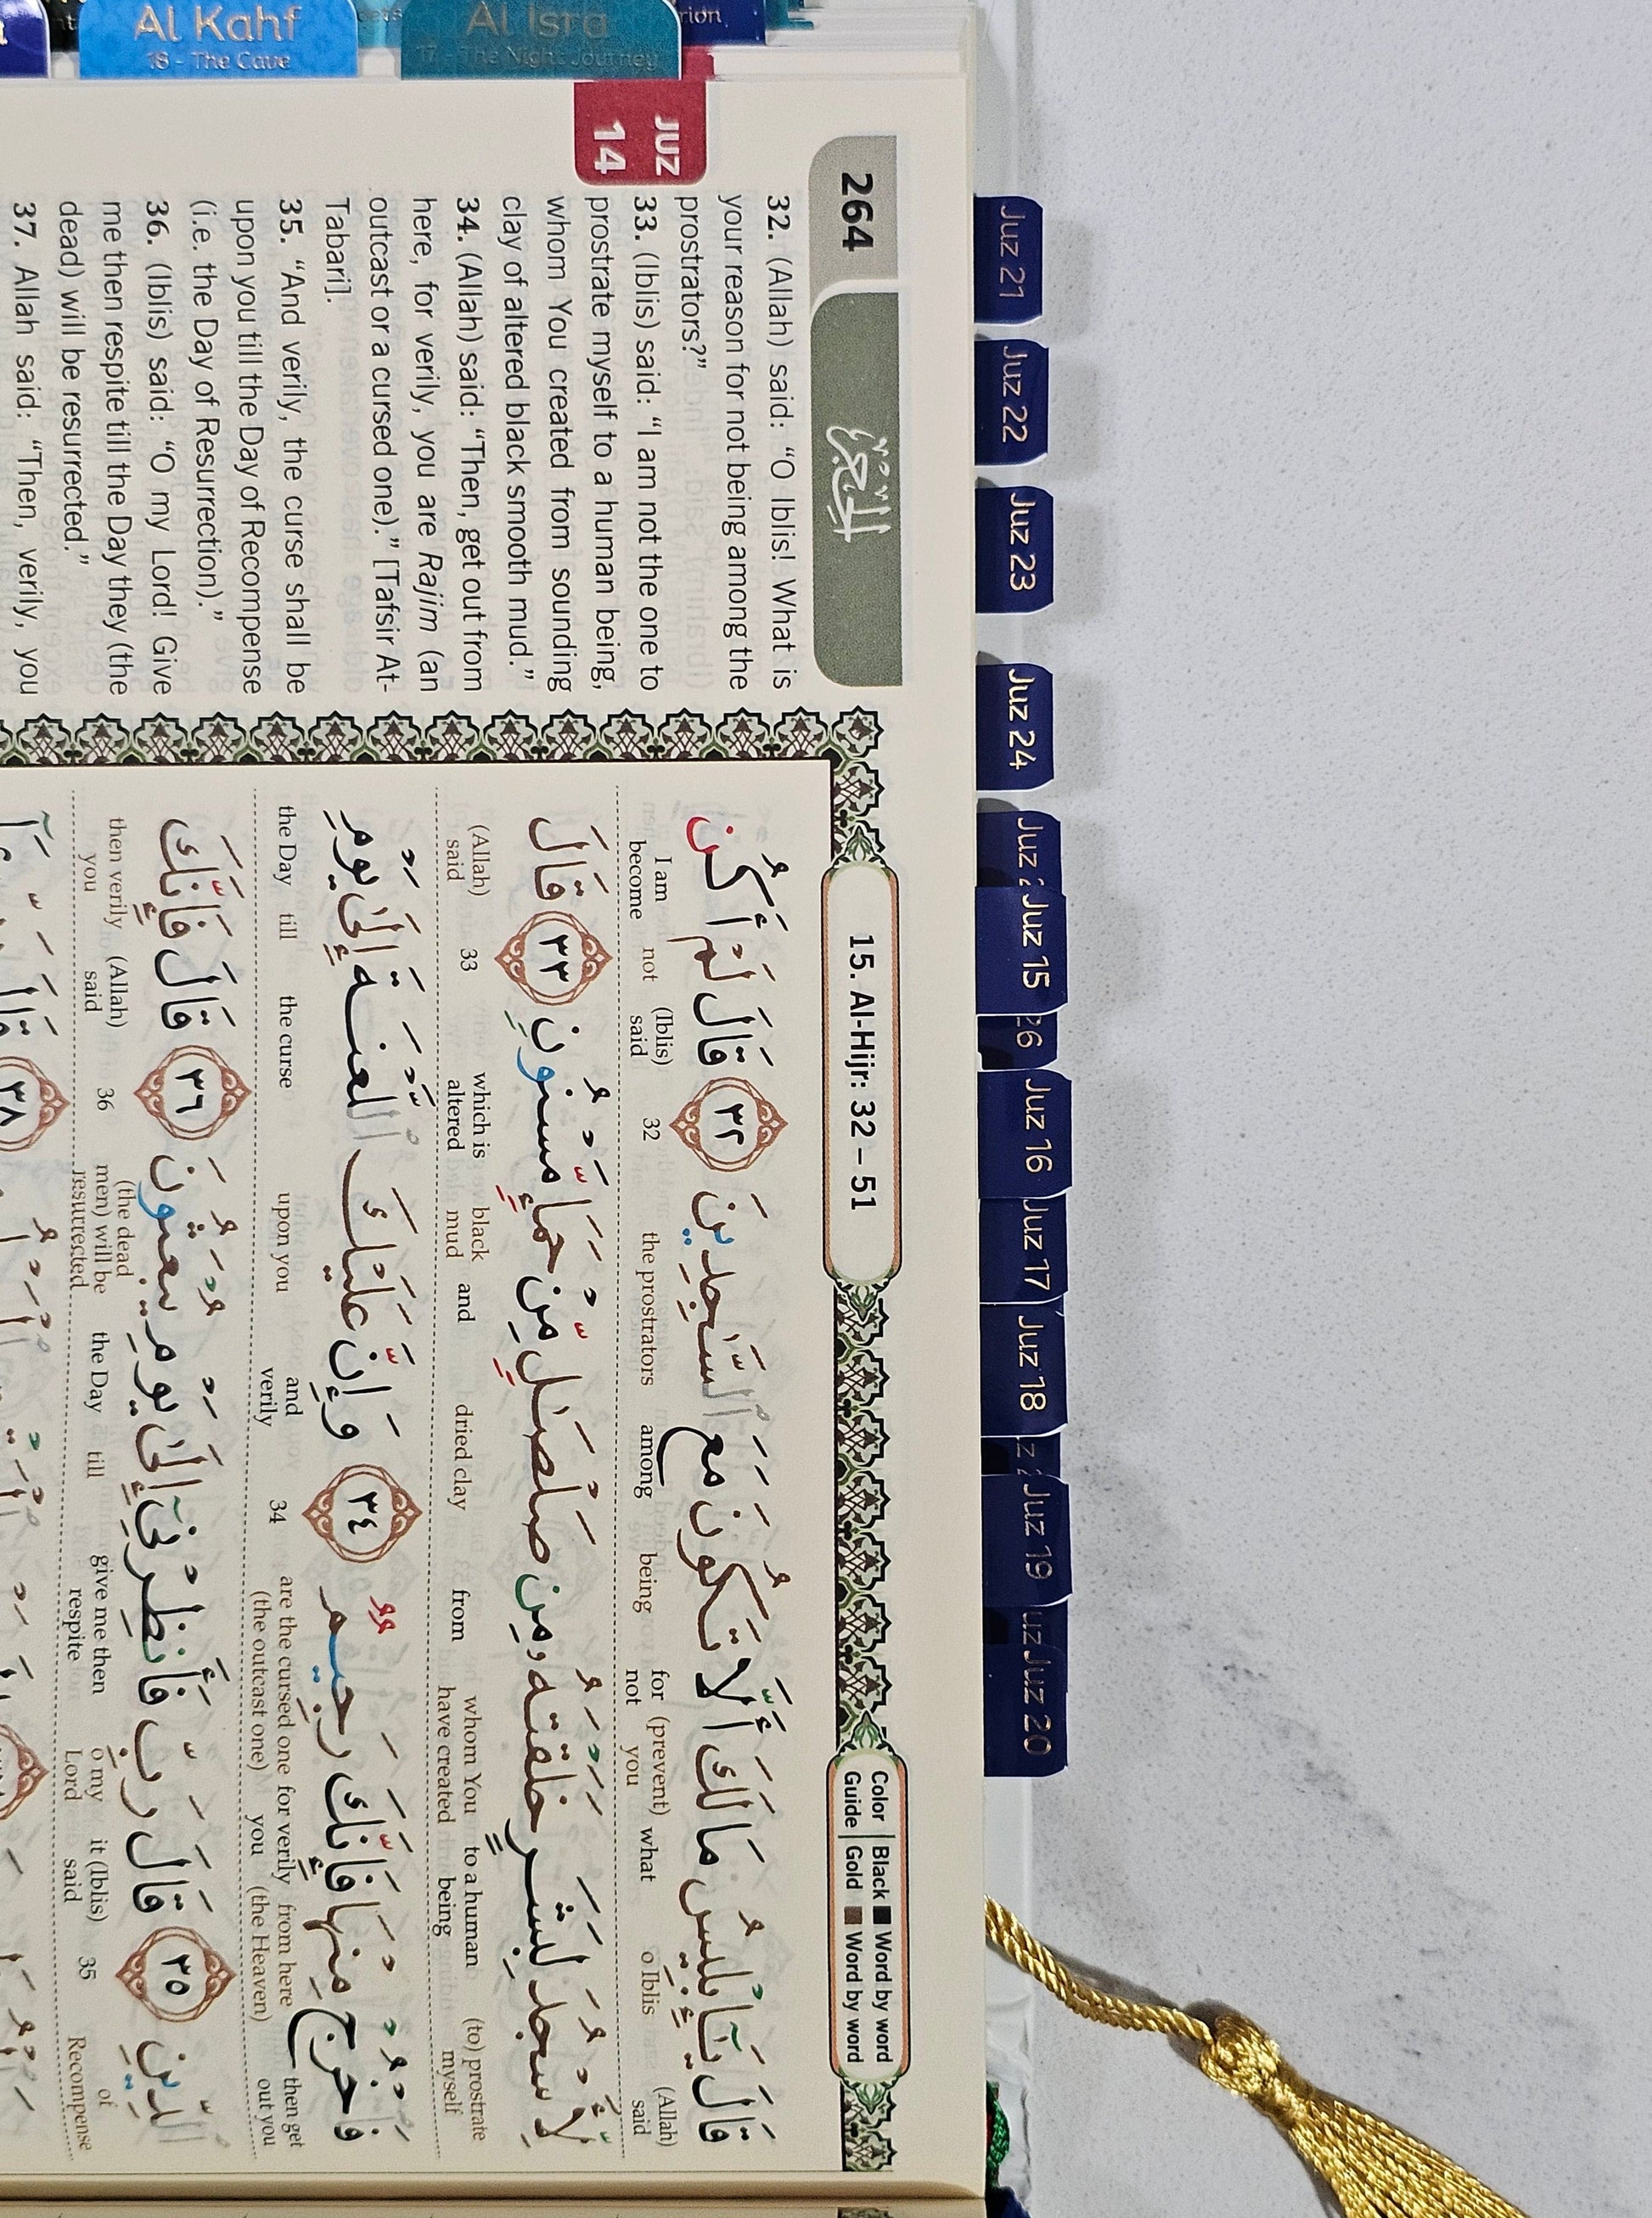 Al Kahf
18 - The Cave
Al Isra
17 - The Night Journey
JUZ
14
264
الحجر
15. Al-Hijr: 32 – 51
Color Guide
Black ■ Word by word
Gold ■ Word by word
32. (Allah) said: “O Iblis! What is
your reason for not being among the
prostrators?”
33. (Iblis) said: “I am not the one to
prostrate myself to a human being,
whom You created from sounding
clay of altered black smooth mud.”
34. (Allah) said: “Then, get out from
here, for verily, you are Rajim (an
outcast or a cursed one).” [Tafsir At-
Tabari].
35. “And verily, the curse shall be
upon you till the Day of Recompense
(i.e. the Day of Resurrection).”
36. (Iblis) said: “O my Lord! Give
me then respite till the Day they (the
dead) will be resurrected.”
37. Allah said: “Then, verily, you
قَالَ يَـٰٓإِبْلِيسُ مَا لَكَ أَلَّا تَكُونَ مَعَ ٱلسَّـٰجِدِينَ ٣٢ قَالَ لَمْ أَكُن
(Allah) said o Iblis what (prevent) you for not being among the prostrators 32 (Iblis) said not I am become
لِّأَسْجُدَ لِبَشَرٍ خَلَقْتَهُۥ مِن صَلْصَـٰلٍ مِّنْ حَمَإٍ مَّسْنُونٍ ٣٣ قَالَ
(to) prostrate myself to a human being whom You have created from dried clay and black mud which is altered 33 (Allah) said
فَٱخْرُجْ مِنْهَا فَإِنَّكَ رَجِيمٌ ٣٤ وَإِنَّ عَلَيْكَ ٱللَّعْنَةَ إِلَىٰ يَوْمِ
then get out you from here (the Heaven) for verily you are the cursed one (the outcast one) 34 and verily upon you the curse till the Day
ٱلدِّينِ ٣٥ قَالَ رَبِّ فَأَنظِرْنِىٓ إِلَىٰ يَوْمِ يُبْعَثُونَ ٣٦ قَالَ فَإِنَّكَ
of Recompense 35 it (Iblis) said o my Lord give me then respite till the Day (the dead men) will be resurrected 36 (Allah) said then verily you
٣٨
Juz 21
Juz 22
Juz 23
Juz 24
Juz 15
26
Juz 16
Juz 17
Juz 18
Juz 19
Juz 20